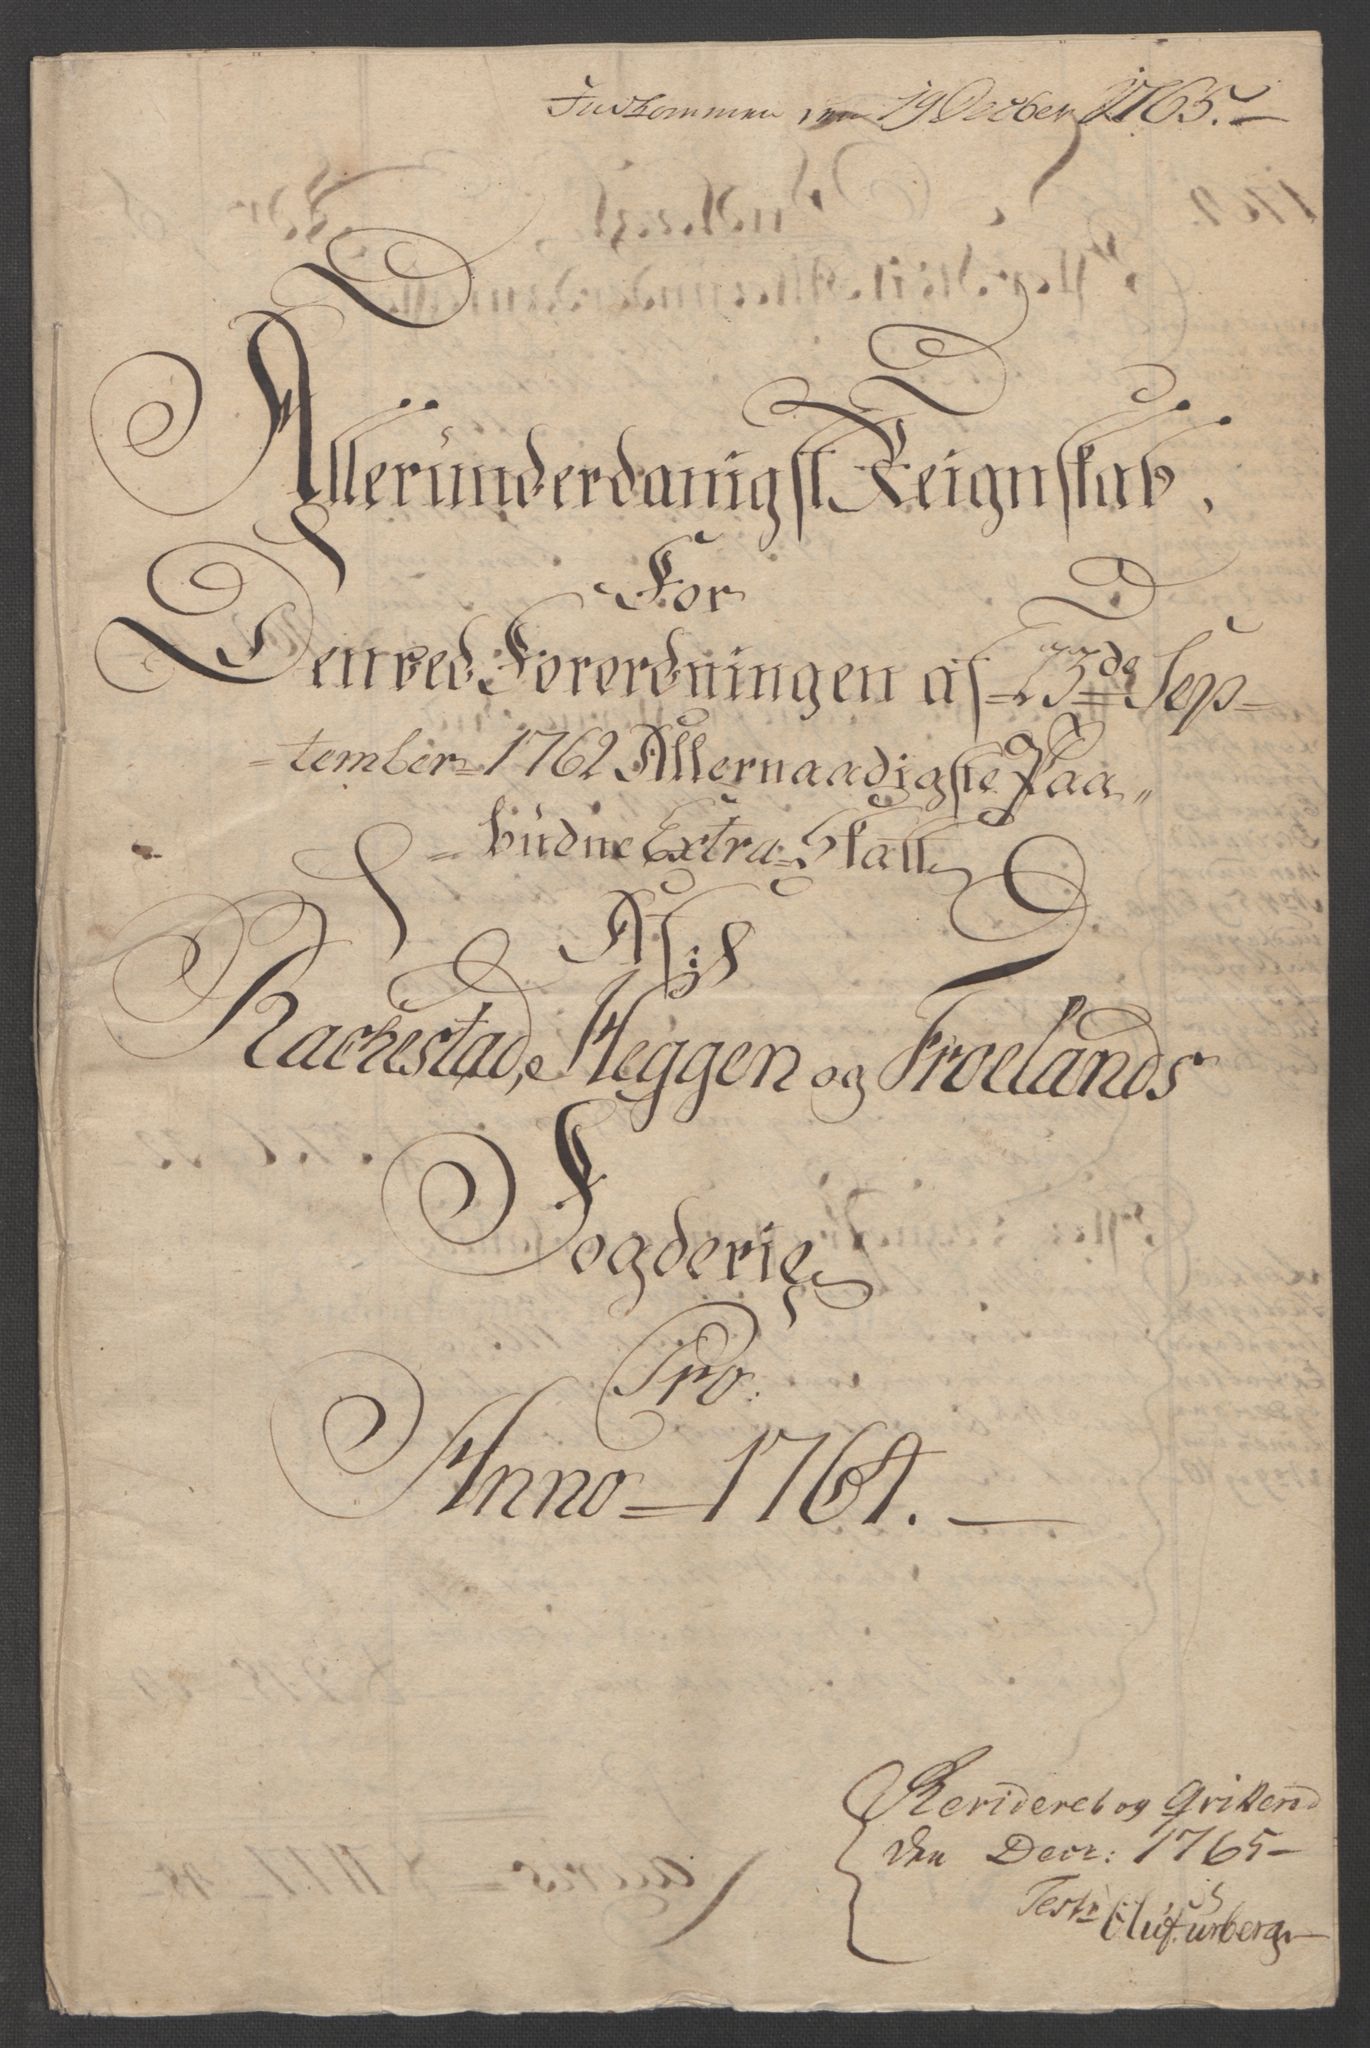 Indkommen den 19 October 1765.
Alleründerdanigst Reignskab,
For
Den ved Forordningen af 23de Sep-
tember 1762 Allernaadigste Paa
büdne Extra Skatt
Af
Rachestad, Heggen og Froelands
Fogderie
Pro:
Anno 1764.
Revideret og Qvitterid
den Decr: 1765
Testr